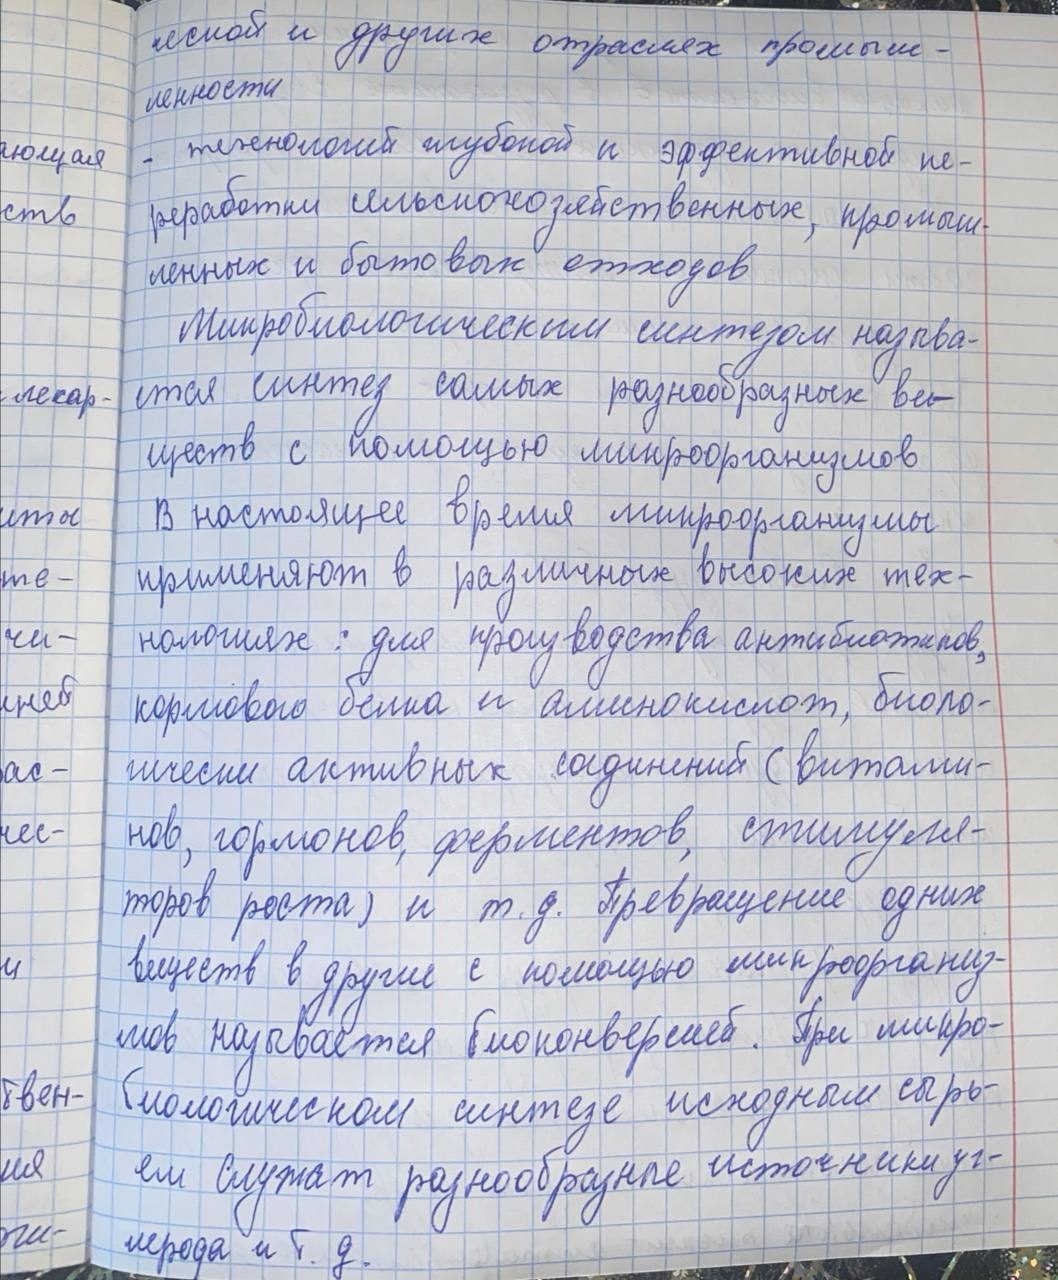 лесной и других отраслях промыш-
ленности
- технологий глубокой и эффективной пе-
реработки сельскохозяйственных, промыш-
ленных и бытовых отходов
Микробиологическим синтезом называ-
ется синтез самых разнообразных ве-
ществ с помощью микроорганизмов
В настоящее время микроорганизмы
применяют в различных высоких тех-
нологиях: для производства антибиотиков,
кормового белка и аминокислот, биоло-
гически активных соединений (витами-
нов, гормонов, ферментов, стимуля-
торов роста) и т.д. Превращение одних
веществ в другие с помощью микроорганиз-
мов называется биоконверсией. При микро-
биологическом синтезе исходным сырь-
ем служат разнообразные источники уг-
лерода и т.д.
ающая
ств
лекар-
иты
те-
чи-
ней
ас-
чес-
и
твен-
ия